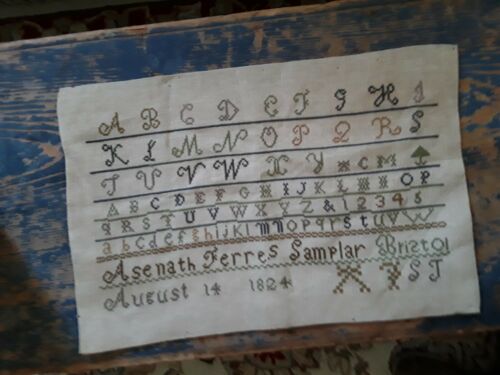 A B C D E F G H I
K L M N O P Q R S
T U V W X Y C M
A B C D E F G H I J K L M N O P
Q R S T U V W X Y Z & 1 2 3 4 5
a b c d e f g h i j k l m n o p q r s t u v w
Asenath Ferres Samplar Bristol
August 14 1824 S T